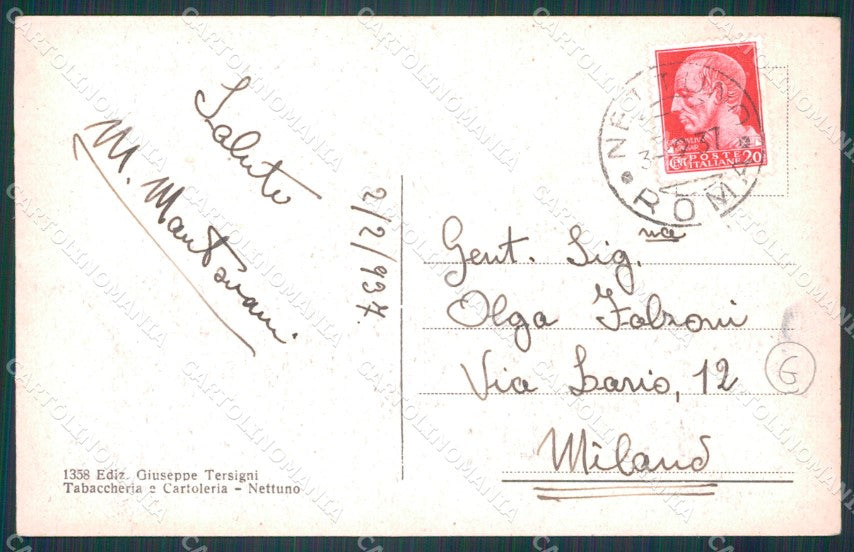 Saluto
M. Mantovani
2/2/937.
1358 Ediz. Giuseppe Tersigni
Tabaccheria e Cartoleria - Nettuno
NETTUNO
ROMA
POSTE
ITALIANE 20
Gent. Sig.na
Olga Falzoni
Via Lario, 12
Milano
G
CARTOLINOMANIA